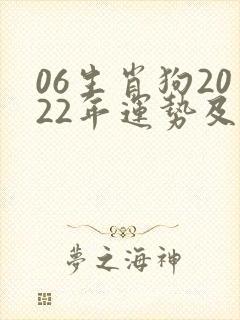 06生肖狗20
22年運勢及
夢之海神